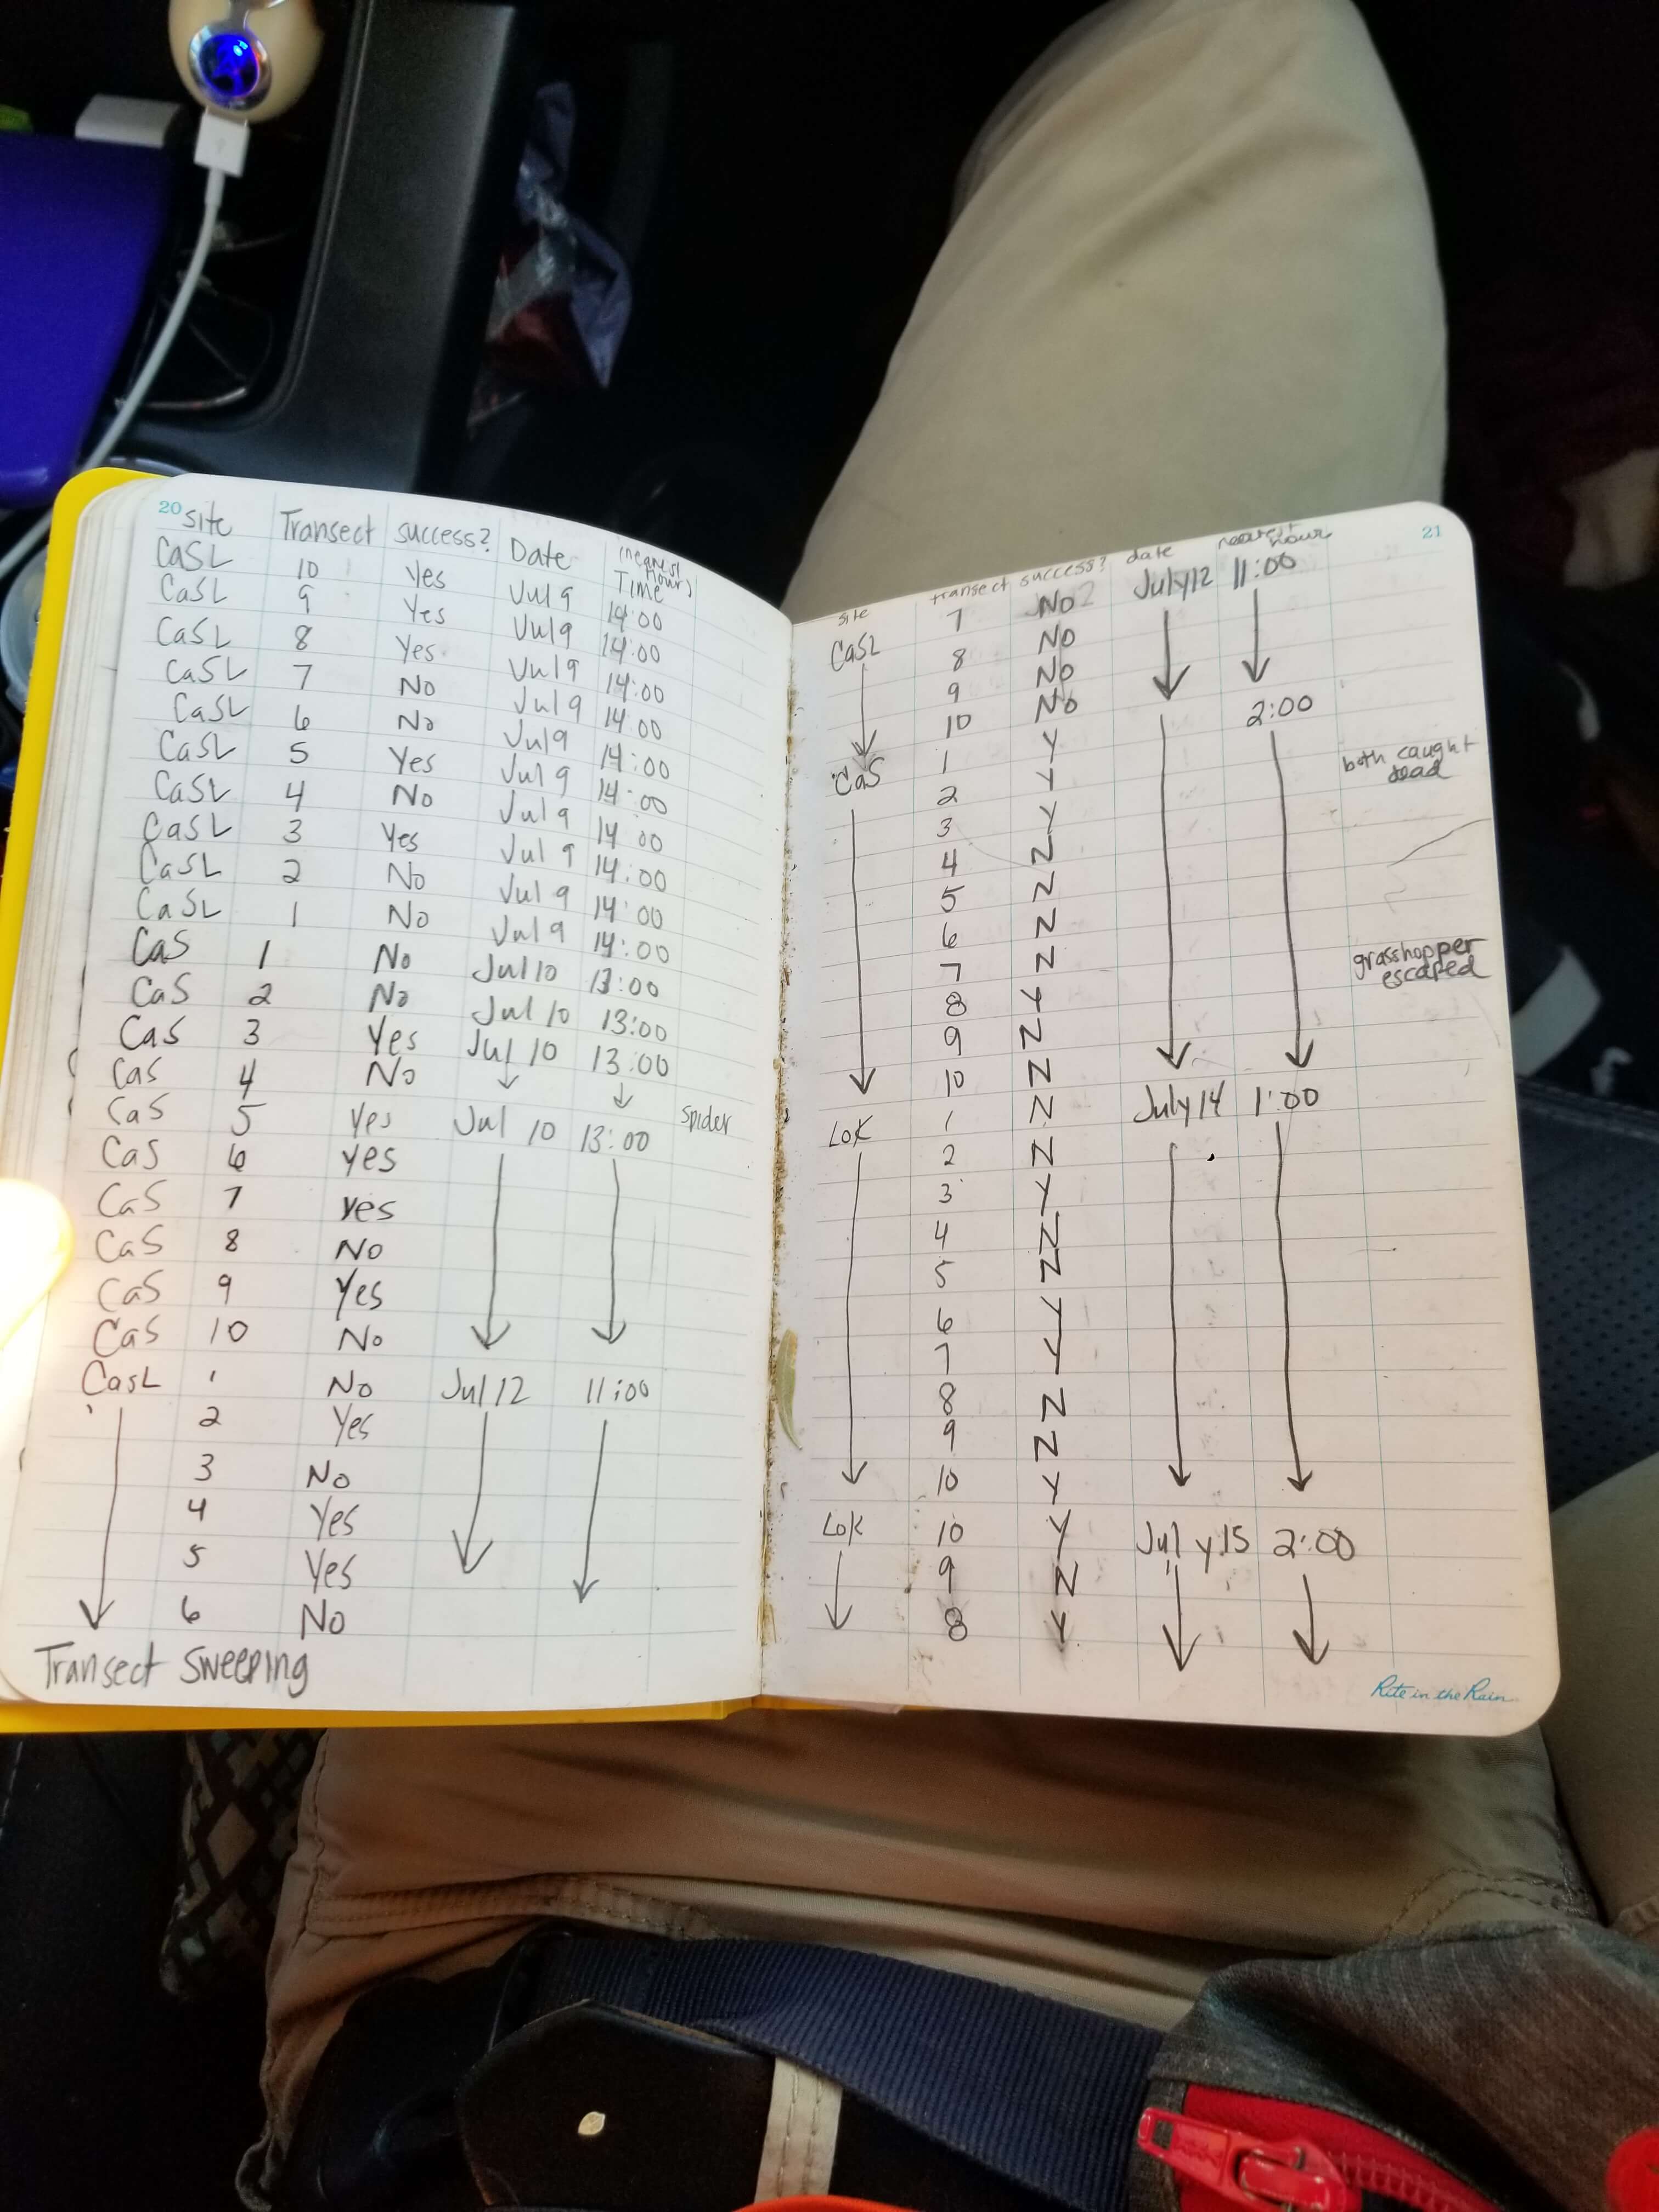 20
site Transect success? Date (nearest hour) Time
CaSL 10 Yes Jul 9 14:00
CaSL 9 Yes Jul 9 14:00
CaSL 8 Yes Jul 9 14:00
CaSL 7 No Jul 9 14:00
CaSL 6 No Jul 9 14:00
CaSL 5 Yes Jul 9 14:00
CaSL 4 No Jul 9 14:00
CaSL 3 Yes Jul 9 14:00
CaSL 2 No Jul 9 14:00
CaSL 1 No Jul 9 14:00
CaS 1 No Jul 10 13:00
CaS 2 No Jul 10 13:00
CaS 3 Yes Jul 10 13:00
CaS 4 No
CaS 5 Yes Jul 10 13:00 spider
CaS 6 yes
CaS 7 yes
CaS 8 No
CaS 9 Yes
CaS 10 No
CasL 1 No Jul 12 11:00
2 Yes
3 No
4 Yes
5 Yes
6 No
Transect Sweeping
21
site transect success? date nearest hour
CaSL 7 No July 12 11:00
8 No
9 No
10 No
CaS 1 Y 2:00
2 Y both caught dead
3 Y
4 N
5 N
6 N
7 N
8 Y grasshopper escaped
9 N
10 N
LoK 1 N July 14 1:00
2 N
3 Y
4 N
5 N
6 Y
7 Y
8 N
9 N
10 Y
LoK 10 Y July 15 2:00
9 N
8 Y
Rite in the Rain